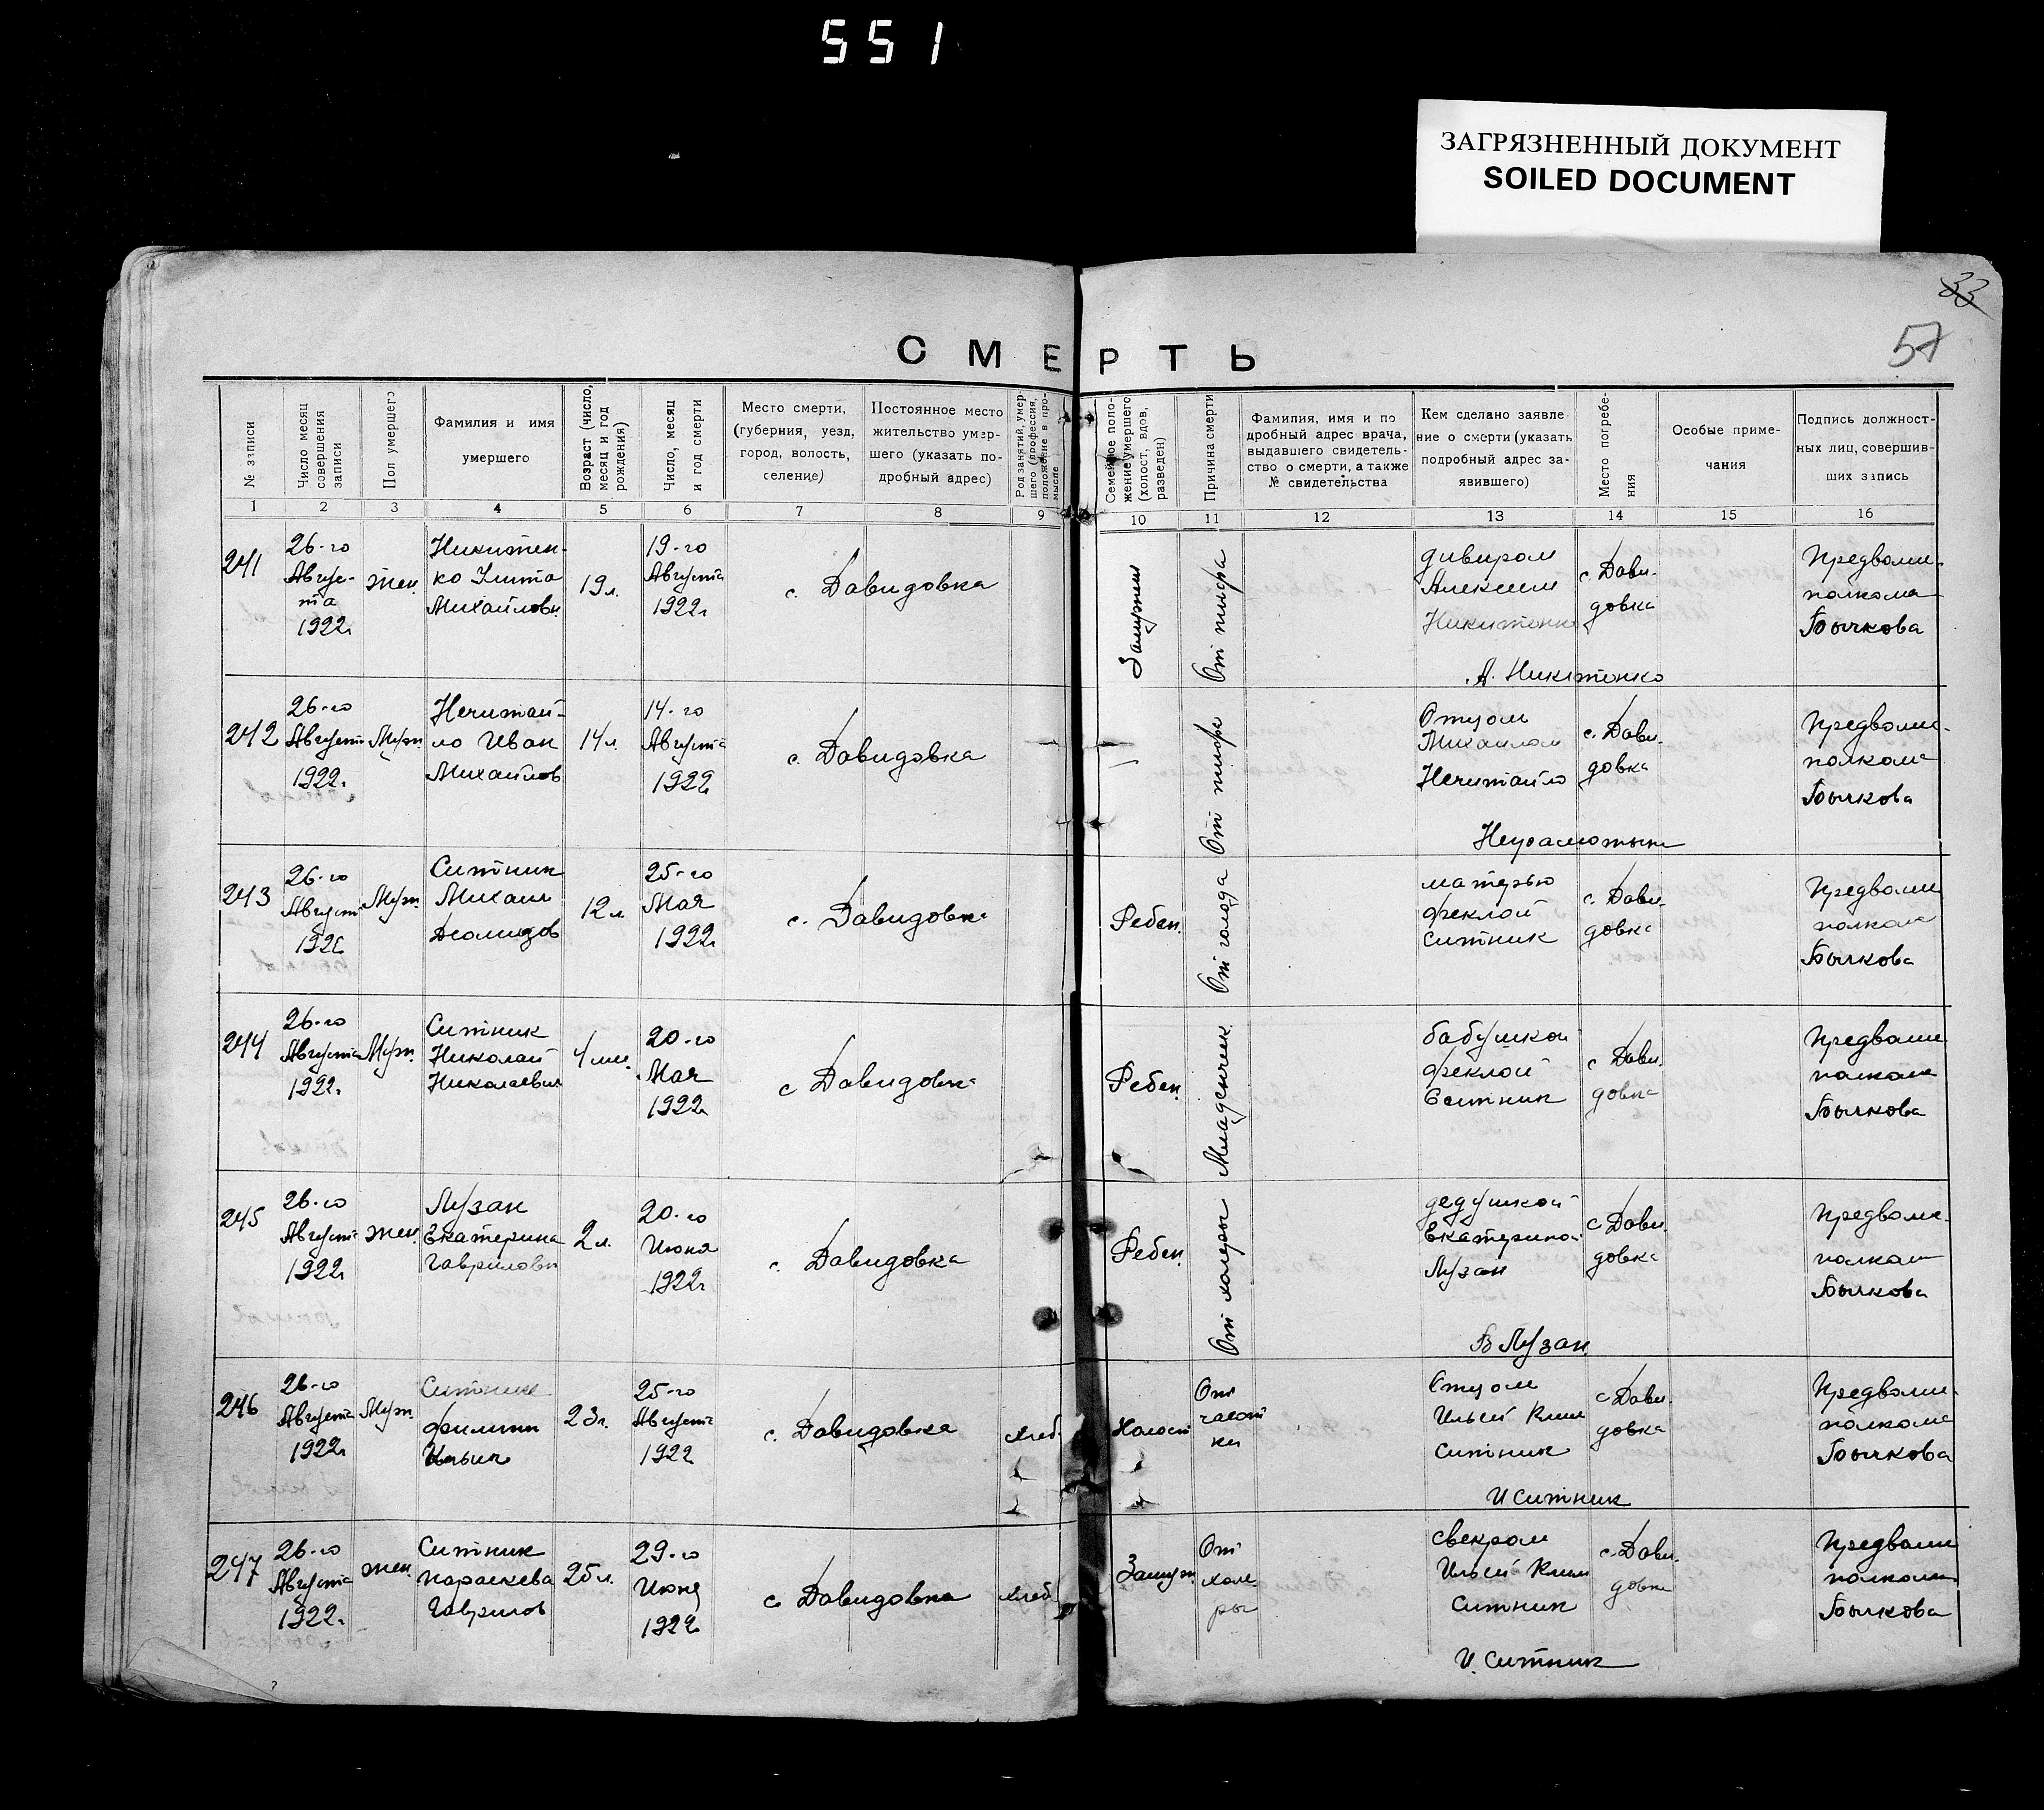 551
ЗАГРЯЗНЕННЫЙ ДОКУМЕНТ
SOILED DOCUMENT
33
57
СМЕРТЬ
№ записи
Число месяц
совершения
записи
Пол умершего
Фамилия и имя
умершего
Возраст (число,
месяц и год
рождения)
Число, месяц
и год смерти
Место смерти,
(губерния, уезд,
город, волость,
селение)
Постоянное место
жительство умер-
шего (указать по-
дробный адрес)
Род занятий, умер-
шего (профессия,
положение в про-
мысле
Семейное поло-
жение умершего
(холост, вдов,
разведен)
Причина смерти
Фамилия, имя и по
дробный адрес врача,
выдавшего свидетель-
ство о смерти, а также
№ свидетельства
Кем сделано заявле
ние о смерти (указать
подробный адрес за-
явившего)
Место погребе-
ния
Особые приме-
чания
Подпись должност-
ных лиц, совершив-
ших запись
1 2 3 4 5 6 7 8 9 10 11 12 13 14 15 16
241
26-го
Авгус-
та
1922г
жен.
Никитен-
ко
Михайловн
19л.
19-го
Августа
1922г
с. Давидовка
Замужни
От тифа
Алексеем
Никитенко
А. Никитенко
с. Дави-
довка
Предволис-
полкома
Бычкова
242
26-го
Августа
1922г.
Муж
Нечитай-
ло Иван
Михайлов
14л.
14-го
Августа
1922
с. Давидовка
От тифа
Отцом
Михаилом
Нечитайло
Неграмотный
с. Дави-
довка
Предволис-
полкома
Бычкова
243
26-го
Август
1922
Муж.
Ситник
Михаил
12л
25-го
Мая
1922г
с. Давидовка
Ребен.
От голода
матерью
Феклой
Ситник
с. Дави-
довка
Предволис
полком
Бычкова
244
26-го
Августа
1922г.
Муж.
Ситник
Николай
Николаевич
4 мес.
20-го
Мая
1922г
с Давидовка
Ребен.
Младенчик
бабушкой
Феклой
Ситник
с Дави-
довка
Предволис
полкома
Бычкова
245
26-го
Августа
1922г
жен.
Лузан
Екатерина
Гавриловн
2л.
20-го
Июня
1922г
с. Давидовка
Ребен.
От холеры
дедушкой
Екатериной
Лузан
В Лузан
с Дави-
довка
Предволис-
полком
Бычкова
246
26-го
Августа
1922г
Муж.
Ситник
Филипп
Ильич
23г.
25-го
Августа
1922
с. Давидовка
хлеб.
Холост
От
чахот
ки
Отцом
Ильей Клим
Ситник
И Ситник
с Дави-
довка
Предволис-
полкома
Бычкова
247
26-го
Августа
1922г.
жен.
Ситник
Параскева
Гаврилов
25л.
29-го
Июня
1922г
с. Давидовка
хлеб
Замуж.
От
холе-
ры
свекром
Ильей Клим
Ситник
И. Ситник
с. Дави-
довка
Предволис
полкома
Бычкова